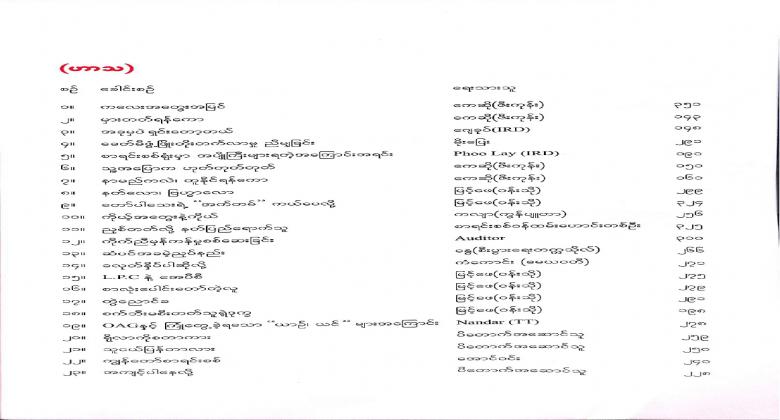 (ဟာသ)
စဉ် ခေါင်းစဉ် ရေးသားသူ
၁။ ကလေးအတွေးအမြင် ကေဆို(ဇီးကုန်း) ၃၅၁
၂။ မှားတတ်ရန်ကော ကေဆို(ဇီးကုန်း) ၁၄၃
၃။ အခုမှပဲ ရှင်းတော့တယ် ဂျေခွပ်(IRD) ၁၄၈
၄။ မမတ်မီဖွံ့ဖြိုးတိုးတက်လာမှု ညီမျှခြင်း မိုးပြေး ၂၉၁
၅။ စာရင်းစစ်ရုံးမှာ အပျိုကြီးများရတဲ့အကြောင်းအရင်း Phoo Lay (IRD) ၀၉၀
၆။ သူ့အပြောက ဟုတ်တုတ်တုတ် ကေဆို(ဇီးကုန်း) ၀၅၀
၇။ နာမည်ကလဲ၊ ထူနိုင်ရန်ကော ကေဆို(ဇီးကုန်း) ၀၆၀
၈။ နတ်လော၊ ဗြဟ္မာလော မြင့်ဖေ(ဝန်းသို) ၂၉၉
၉။ တော်ပါသေးရဲ့ "အက်တမ်" ကယ်မပေလို့ မြင့်ဖေ(ဝန်းသို) ၃၂၄
၁၀။ ကိုယ့်အတွေးနဲ့ကိုယ် ကလျာ(ကွန်ပျူတာ) ၂၅၆
၁၁။ ညှစ်တတ်လို့ နတ်ပြည်ရောက်သူ စာရင်းစစ်ဝန်ထမ်းဟောင်းတစ်ဦး ၃၂၅
၁၂။ တိုက်ညီမှန်ကန်မှုစစ်ဆေးခြင်း Auditor ၃၀၀
၁၃။ ဆံပင်အခမဲ့ညှပ်နည်း ဓန္တ(စီးပွားရေးတက္ကသိုလ်) ၂၆၆
၁၄။ ခလုတ်နှိပ်ပါဆိုလို့ ကံကောင်း (မမယပတီ) ၂၇၁
၁၅။ L.P.C နဲ့ အေပီစီ မြင့်ဖေ(ဝန်းသို) ၂၇၅
၁၆။ စာလုံးပေါင်းမတော်တဲ့လူ မြင့်ဖေ(ဝန်းသို) ၂၇၉
၁၇။ တွဲညောင်ခ မြင့်ဖေ(ဝန်းသို) ၂၉၁
၁၈။ စက်ဘီးမစီးတတ်သူရဲ့ဒုက္ခ မြင့်ဖေ(ဝန်းသို) ၁၉၈
၁၉။ OAGနှင့် ကြုံတွေ့ခဲ့ရသော "ယာဉ်၊ ယင်" များအကြောင်း Nandar (TT) ၂၇၈
၂၀။ ရှိလာကိုစတာကား ပိတောက်အဆောင်သူ ၂၅၉
၂၁။ သူငယ်ပြန်တာလား ပိတောက်အဆောင်သူ ၂၅၀
၂၂။ ကျွန်တော်စာရင်းစစ် အောင်ဝင်း ၂၄၀
၂၃။ အကျင့်ပါနေလို့ ပိတောက်အဆောင်သူ ၂၂၈